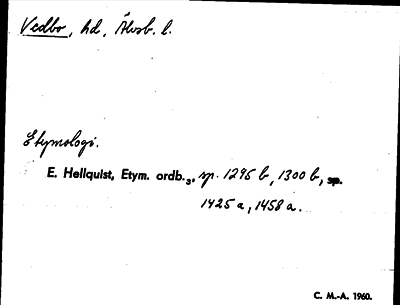 Vedbo, hd, Älvsb. l.
Etymologi.
E. Hellquist, Etym. ordb.₃, sp. 1295 b, 1300 b, sp.
1425 a, 1458 a.
C. M.-A. 1960.